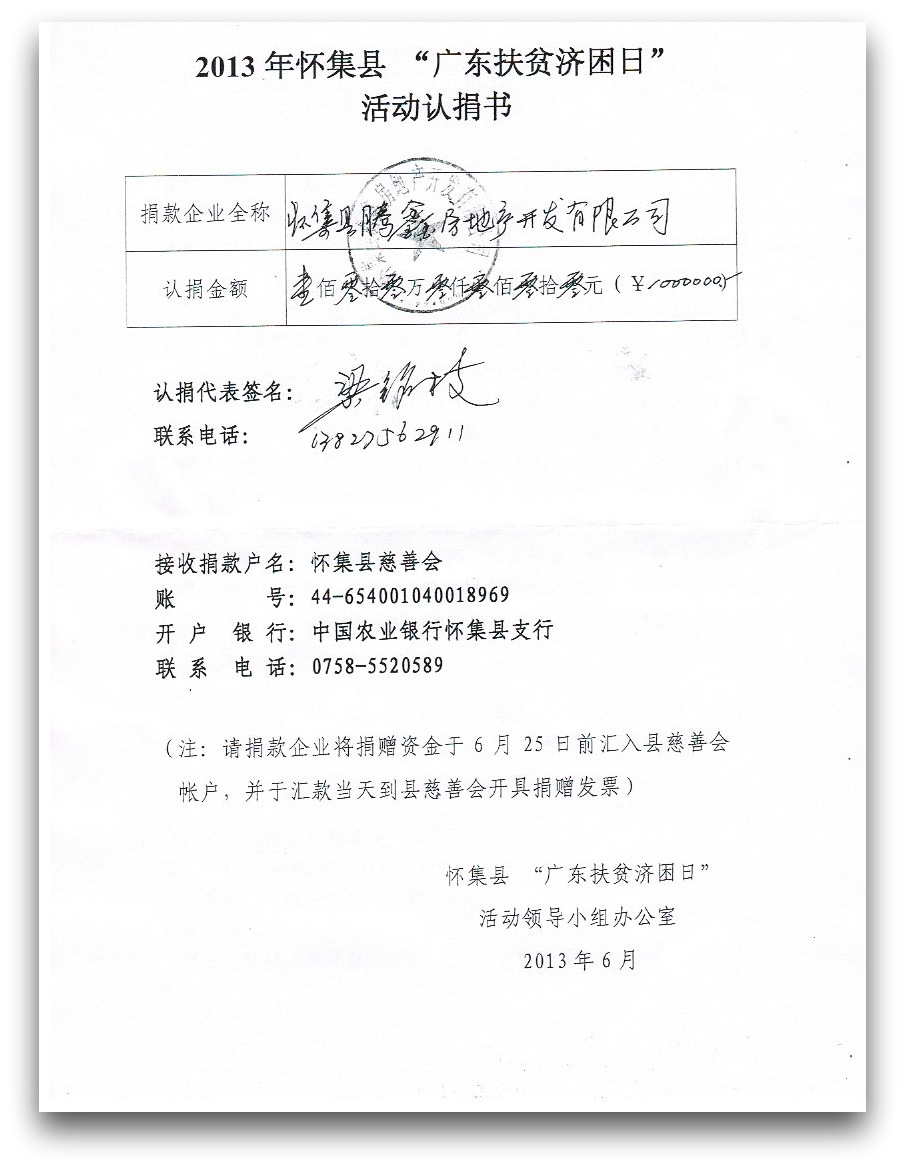 2013年怀集县 “广东扶贫济困日”
活动认捐书
捐款企业全称 怀集县腾鑫房地产开发有限公司
认捐金额 壹佰零拾零万零仟零佰零拾零元(¥1000000.-
认捐代表签名:
联系电话: 13827562911
接收捐款户名: 怀集县慈善会
账 号: 44-654001040018969
开 户 银 行: 中国农业银行怀集县支行
联 系 电 话: 0758-5520589
(注: 请捐款企业将捐赠资金于 6 月 25 日前汇入县慈善会
帐户, 并于汇款当天到县慈善会开具捐赠发票)
怀集县 “广东扶贫济困日”
活动领导小组办公室
2013 年 6 月